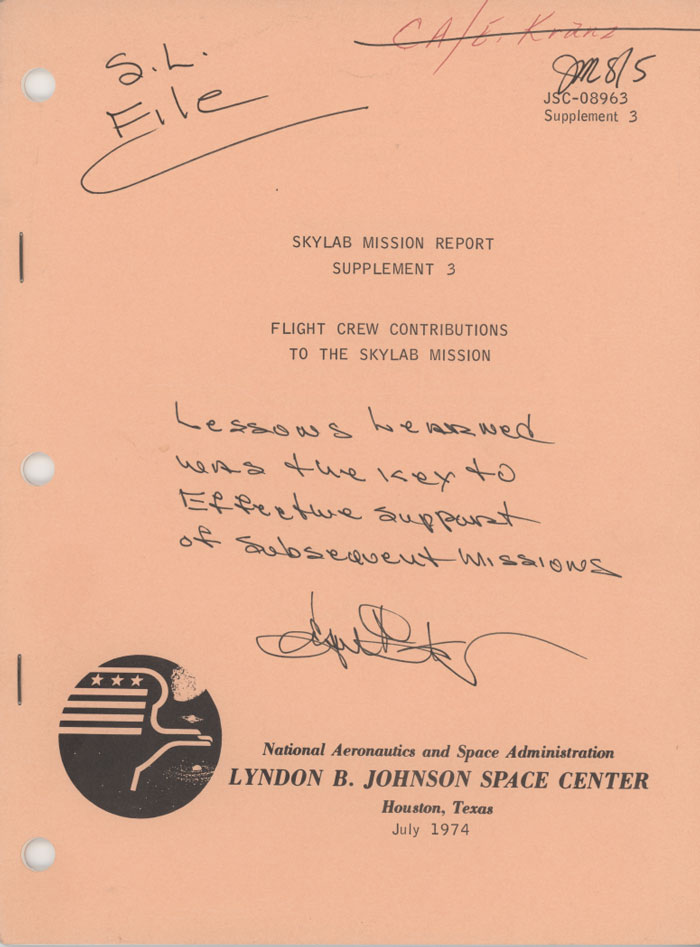 CA/E. Kranz
S.L.
File
8/5
JSC-08963
Supplement 3
SKYLAB MISSION REPORT
SUPPLEMENT 3
FLIGHT CREW CONTRIBUTIONS
TO THE SKYLAB MISSION
Lessons Learned
was the key to
Effective support
of Subsequent Missions
National Aeronautics and Space Administration
LYNDON B. JOHNSON SPACE CENTER
Houston, Texas
July 1974